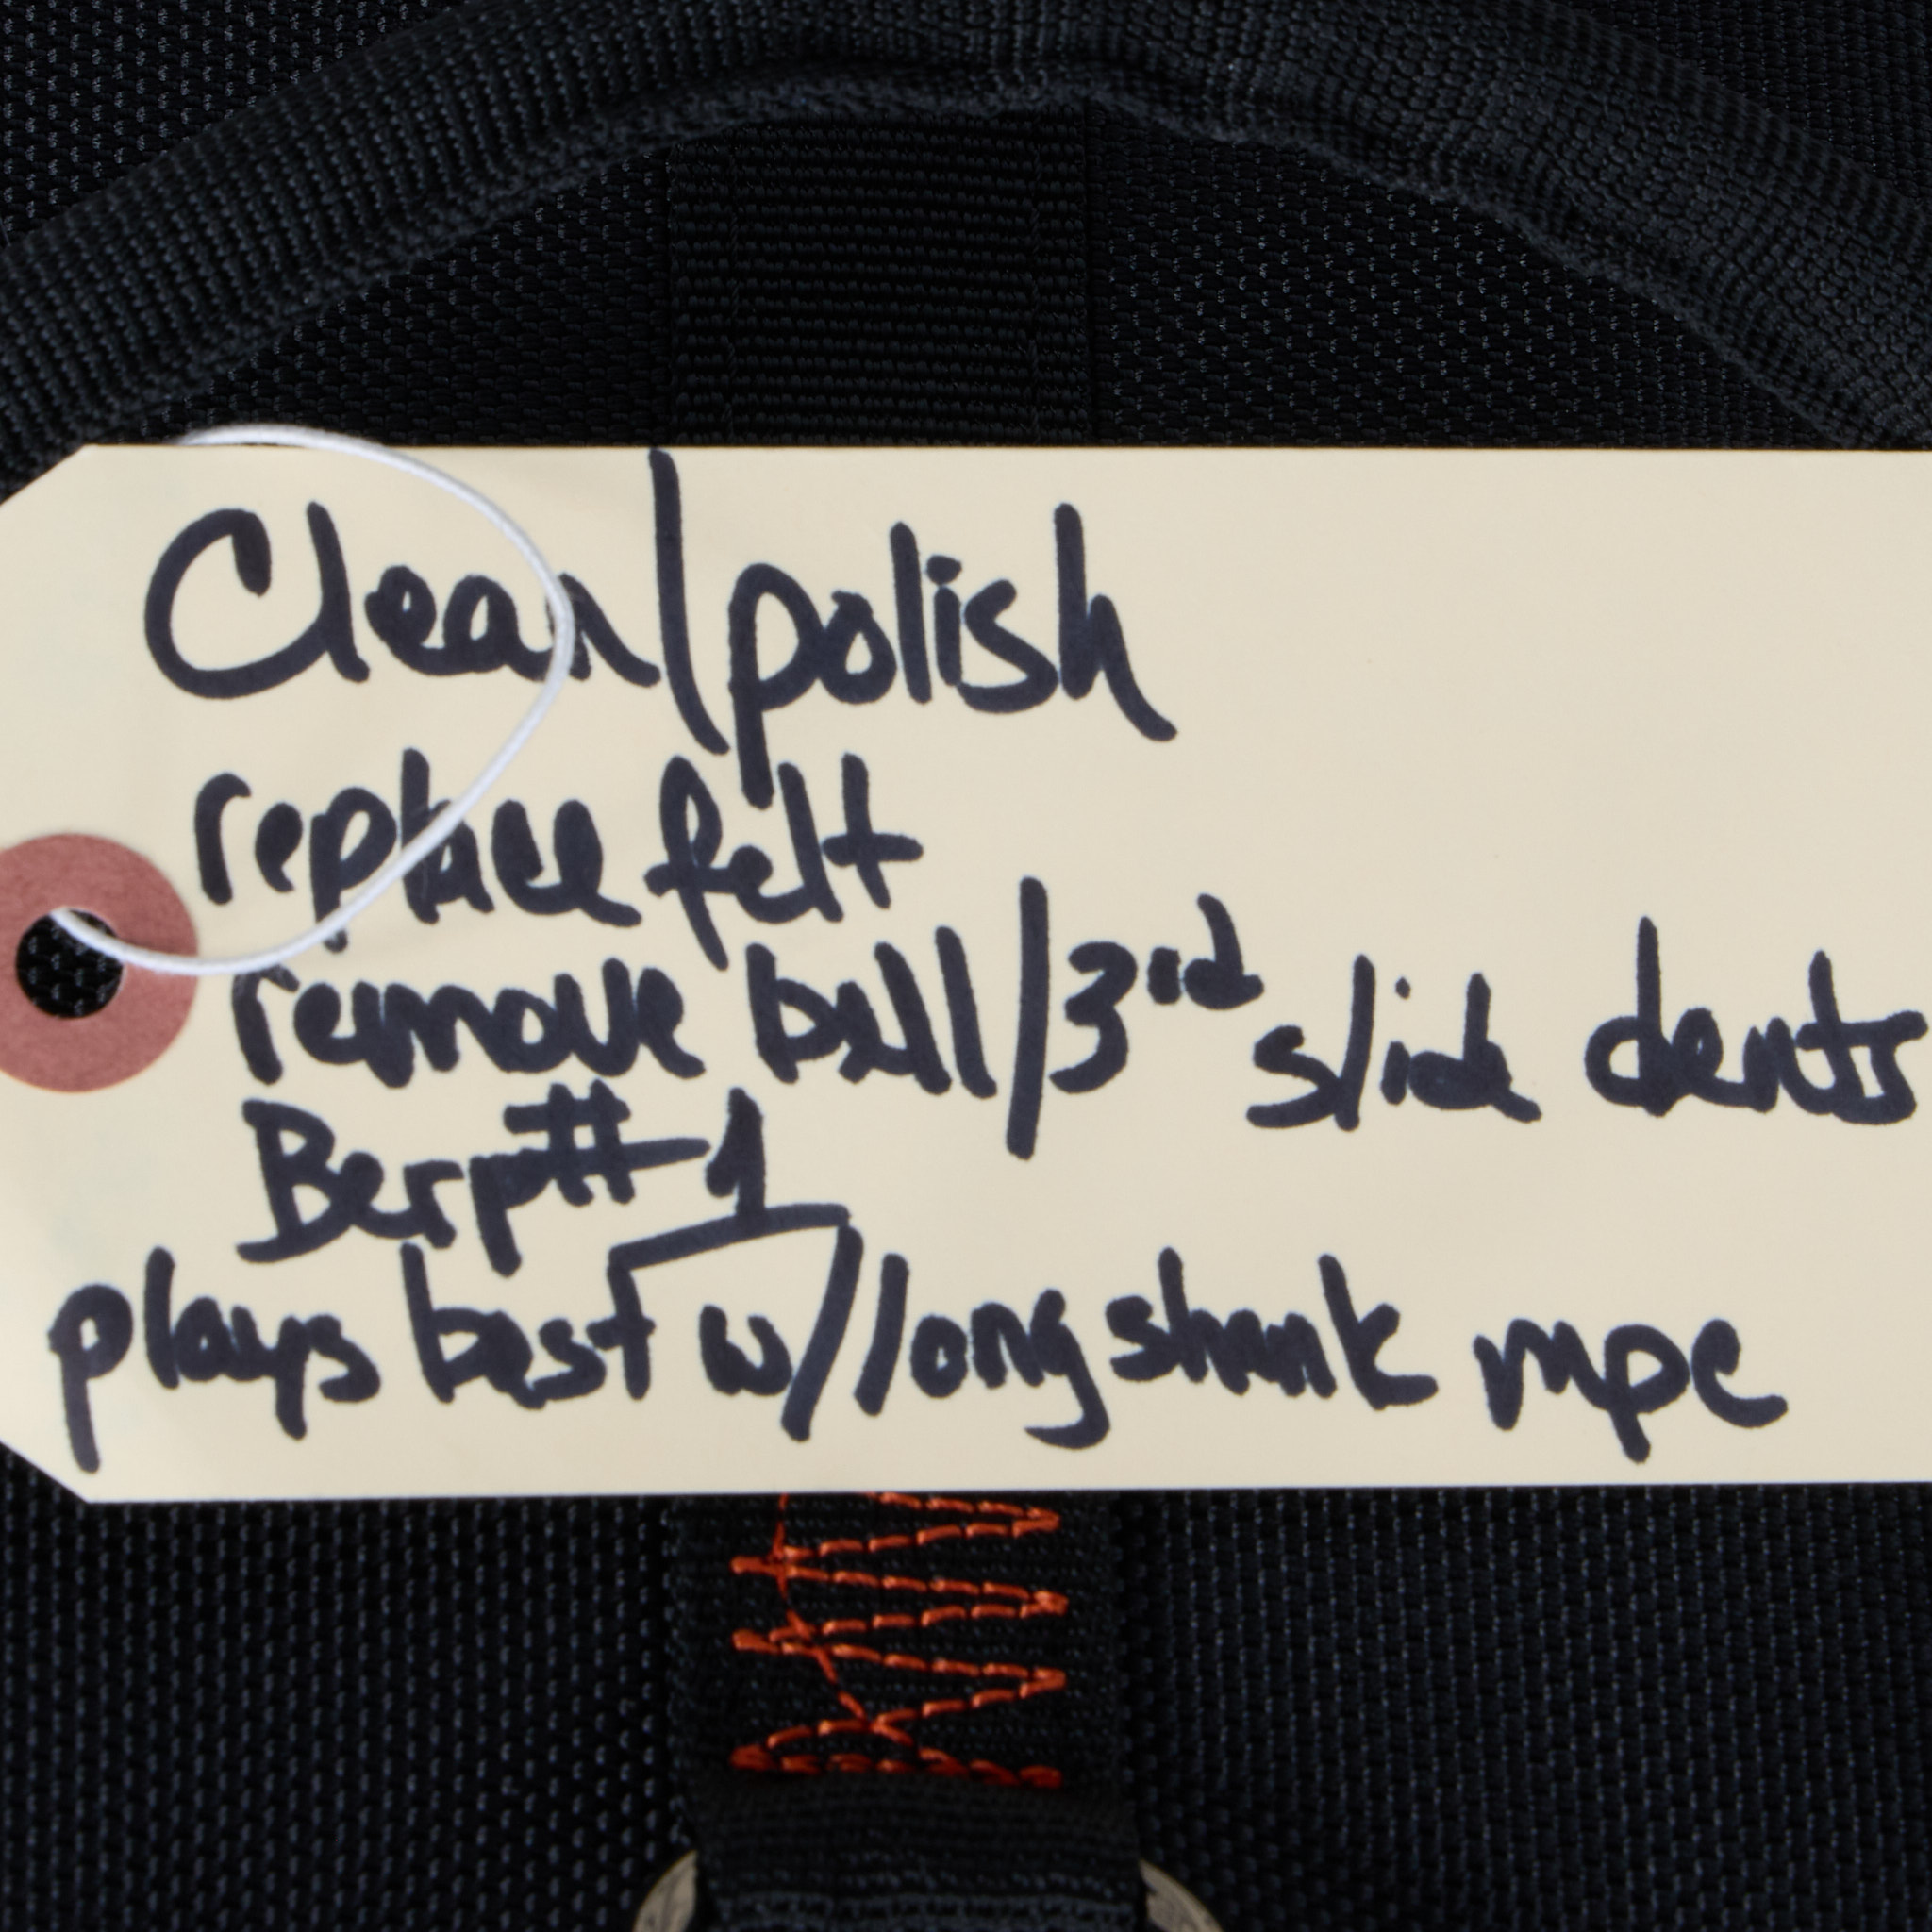 Clean/polish
replace felt
remove bell/3rd slide dents
Berp# 1
plays best w/long shank mpc